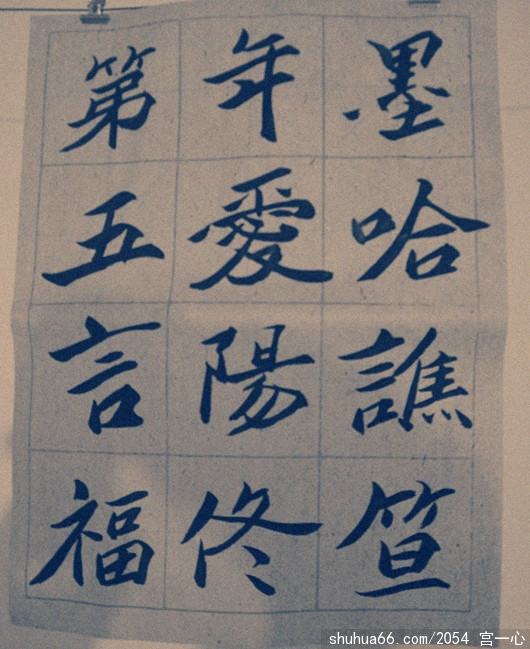 墨哈譙笪
年愛陽佟
第五言福
shuhua66.com/2054 宫一心